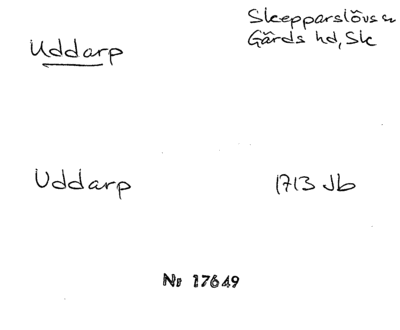 Uddarp
Skepparslövs sn
Gärds hd, Sk
Uddarp
1713 Jb
Nr 17649